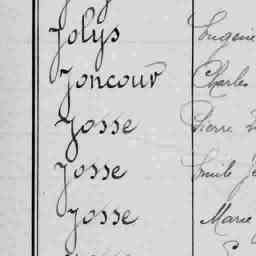 Jolys Eugenie
Joncour Charles
Josse Pierre
Josse Emile
Josse Marie